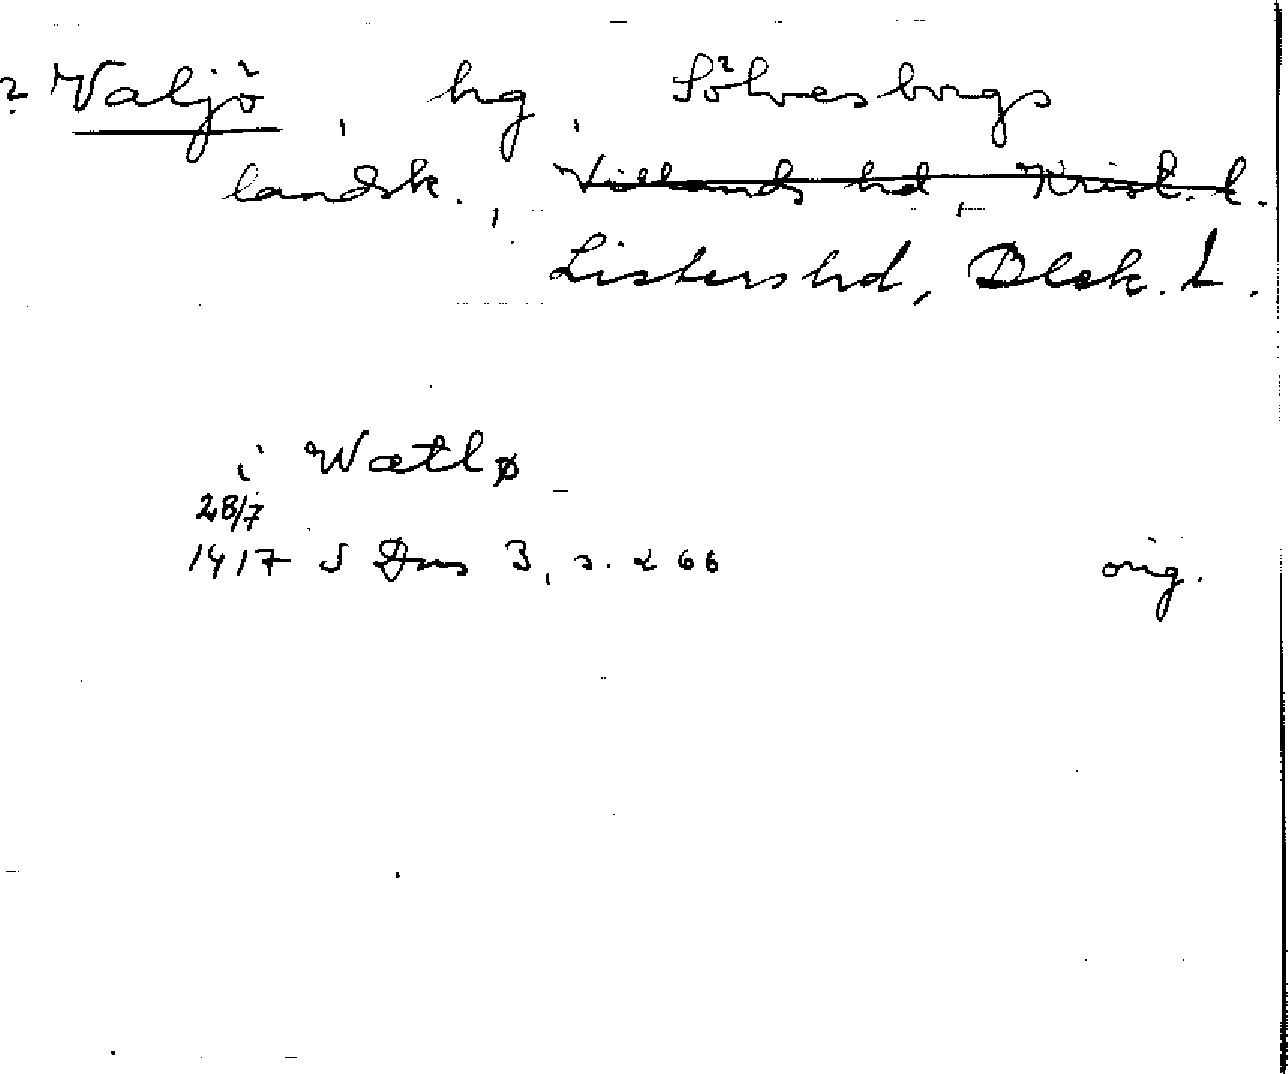 ? Valjö, hg, Sölvesborgs
landsk., Villands hd, Krist. l.
Listers hd, Blek. l.
i Watlø
28/7
1417 S Dns 3, s. 266 orig.